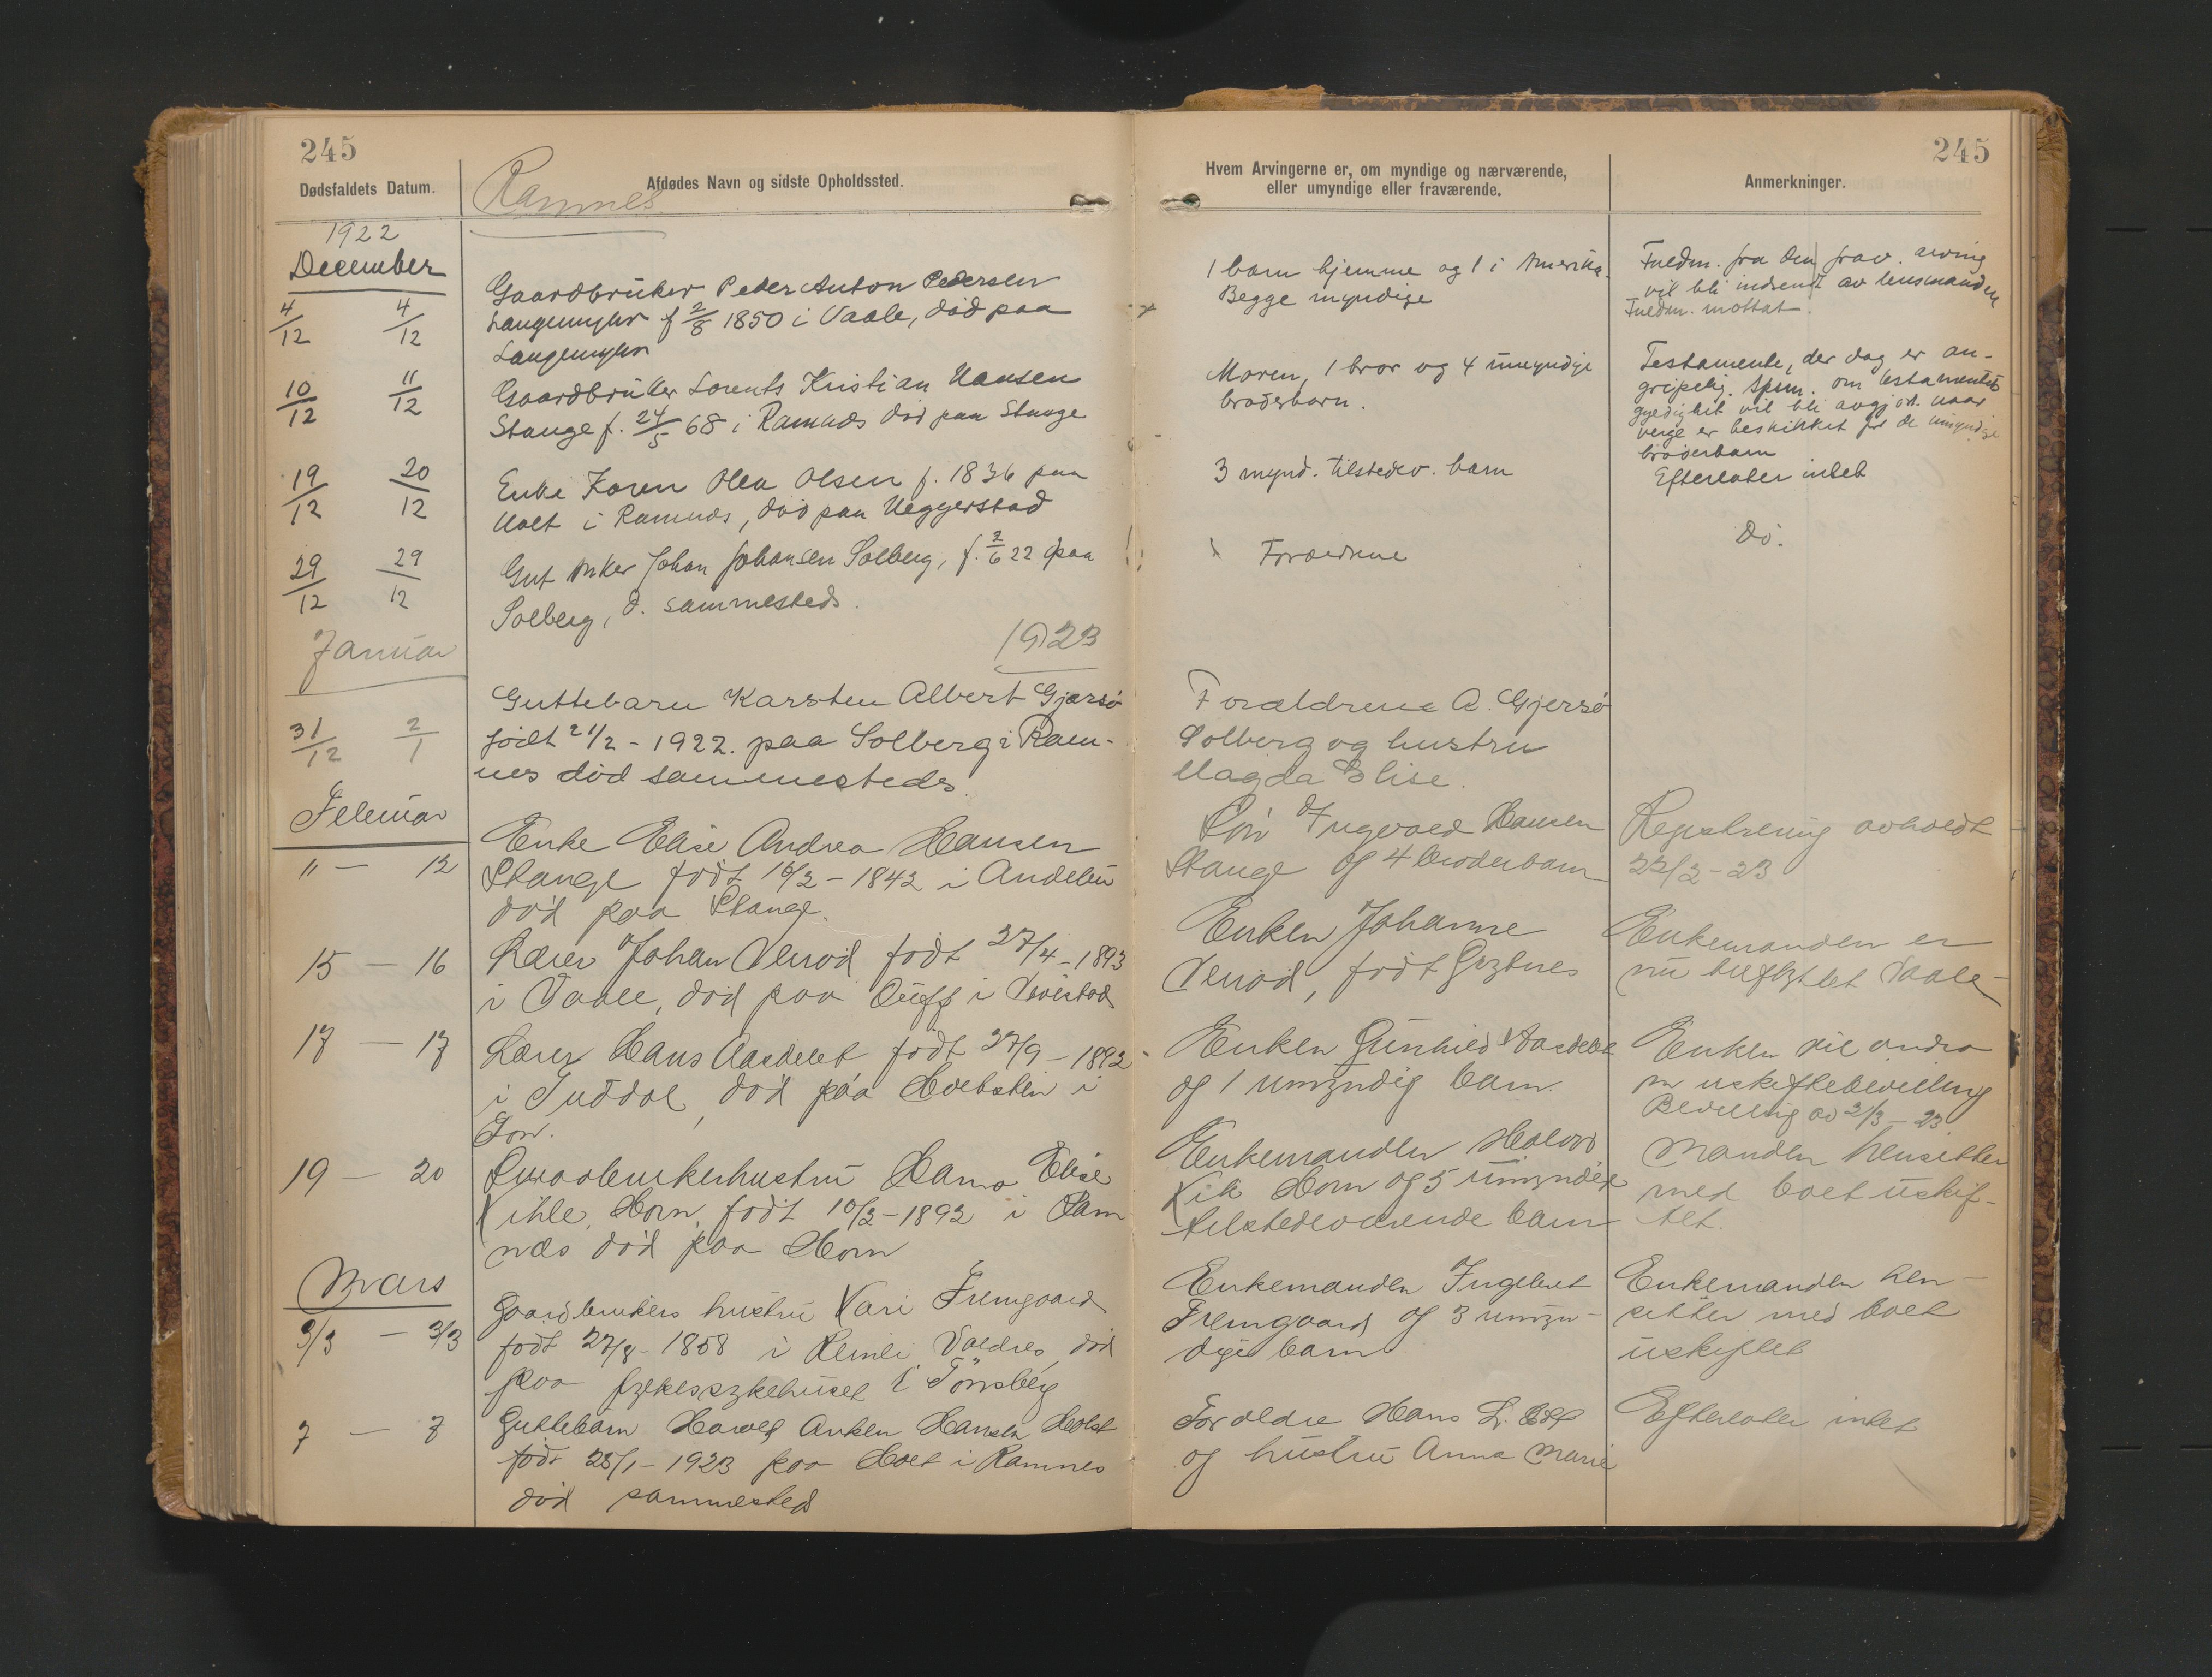 245
Dødsfaldets Datum.
Afdødes Navn og sidste Opholdssted.
Ramnes
Hvem Arvingerne er, om myndige og nærværende,
eller umyndige eller fraværende.
Anmerkninger.
245
1922
December
4/12 4/12
Gaardbruker Peder Anton Pedersen
Langemyhr f 2/8 1850 i Vaale, død paa
Langemyhr
1 barn hjemme og 1 i Amerika.
Begge myndige
Fuldm. fra den frav. arving
vil bli indsendt av lensmanden
Fuldm. mottat.
10/12 11/12
Gaardbruker Lorents Kristian Hansen
Stange f. 24/5 68 i Ramnæs død paa Stange
Moren, 1 bror og 4 umyndige
broderbarn.
Testamente, der dog er an-
gripelig. Spm. om testamentets
gyldighet vil bli avgjort naar
verge er beskikket for de umyndige
broderbarn
19/12 20/12
Enke Karen Olea Olsen f. 1836 paa
Holt i Ramnæs, død paa Heggerstad
3 mynd. tilstedev. barn
Efterlater intet
29/12 29/12
Gut Anker Johan Johansen Solberg, f. 2/6 22 paa
Solberg, d. sammesteds.
Forældrene
Do.
Januar
1923
31/12 2/1
Guttebarn Karsten Albert Gjersø
født 21/2 - 1922. paa Solberg i Ram-
nes död sammesteds.
Forældrene A. Gjersø
Solberg og hustru
Magda Elise.
Februar
11 - 12
Enke Elise Andrea Hansen
Stange født 16/2 - 1842 i Andebu
død paa Stange.
Søn Ingvald Hansen
Stange og 4 broderbarn
Registrering avholdt
22/2 - 23
15 - 16
Lærer Johan Verød født 27/4 - 1893
i Vaale, død paa
Enken Johanne
Verød, født
Enkemanden er
nu tilflyttet Vaale
17 - 17
Lærer Hans Aasdelet født 27/9 - 1892
i Tuddal, død paa i
Enken Gunhild Aasdelet
og 1 umyndig barn.
Enken vil andra
m uskiftebevilling
Bevilling av 2/3 - 23
19 - 20
Gaardbrukerhustru Hanna Elise
Kihle, Horn, født 10/2 - 1892 i Ram
næs død paa Horn
Enkemanden Halvor
Kile Horn og 5 umyndige
tilstedeværende barn
Manden hensitter
med boet uskif-
tet.
Mars
3/3 - 3/3
Gaardbrukers hustru Kari Fremgaard
født 27/8 - 1858 i Reinli Valdres, død
paa fylkessykehuset i Tønsberg
Enkemanden Ingebret
Fremgaard og 3 umyn-
dige barn
Enkemanden hen-
sitter med boet
uskiftet
7 - 8
Guttebarn Harald Anken Hansen Holst
født 28/1 - 1923 paa Holt i Ramnes
død sammesteds
Forældre Hans L.
og hustru Anna Marie
Efterlater intet